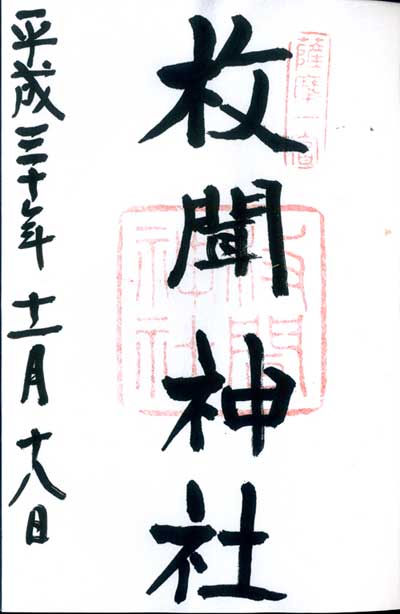 薩摩一宮
枚聞神社
枚聞神社
平成三十年十一月十八日